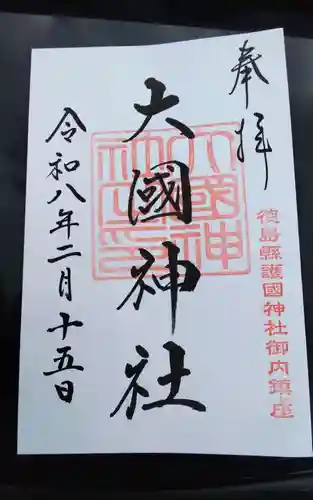 奉拝
徳島縣護國神社御内鎮座
大國神社
大國神社之印
令和八年二月十五日